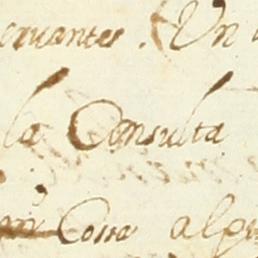 ervantes. Un
la Consulta
Cosa algu